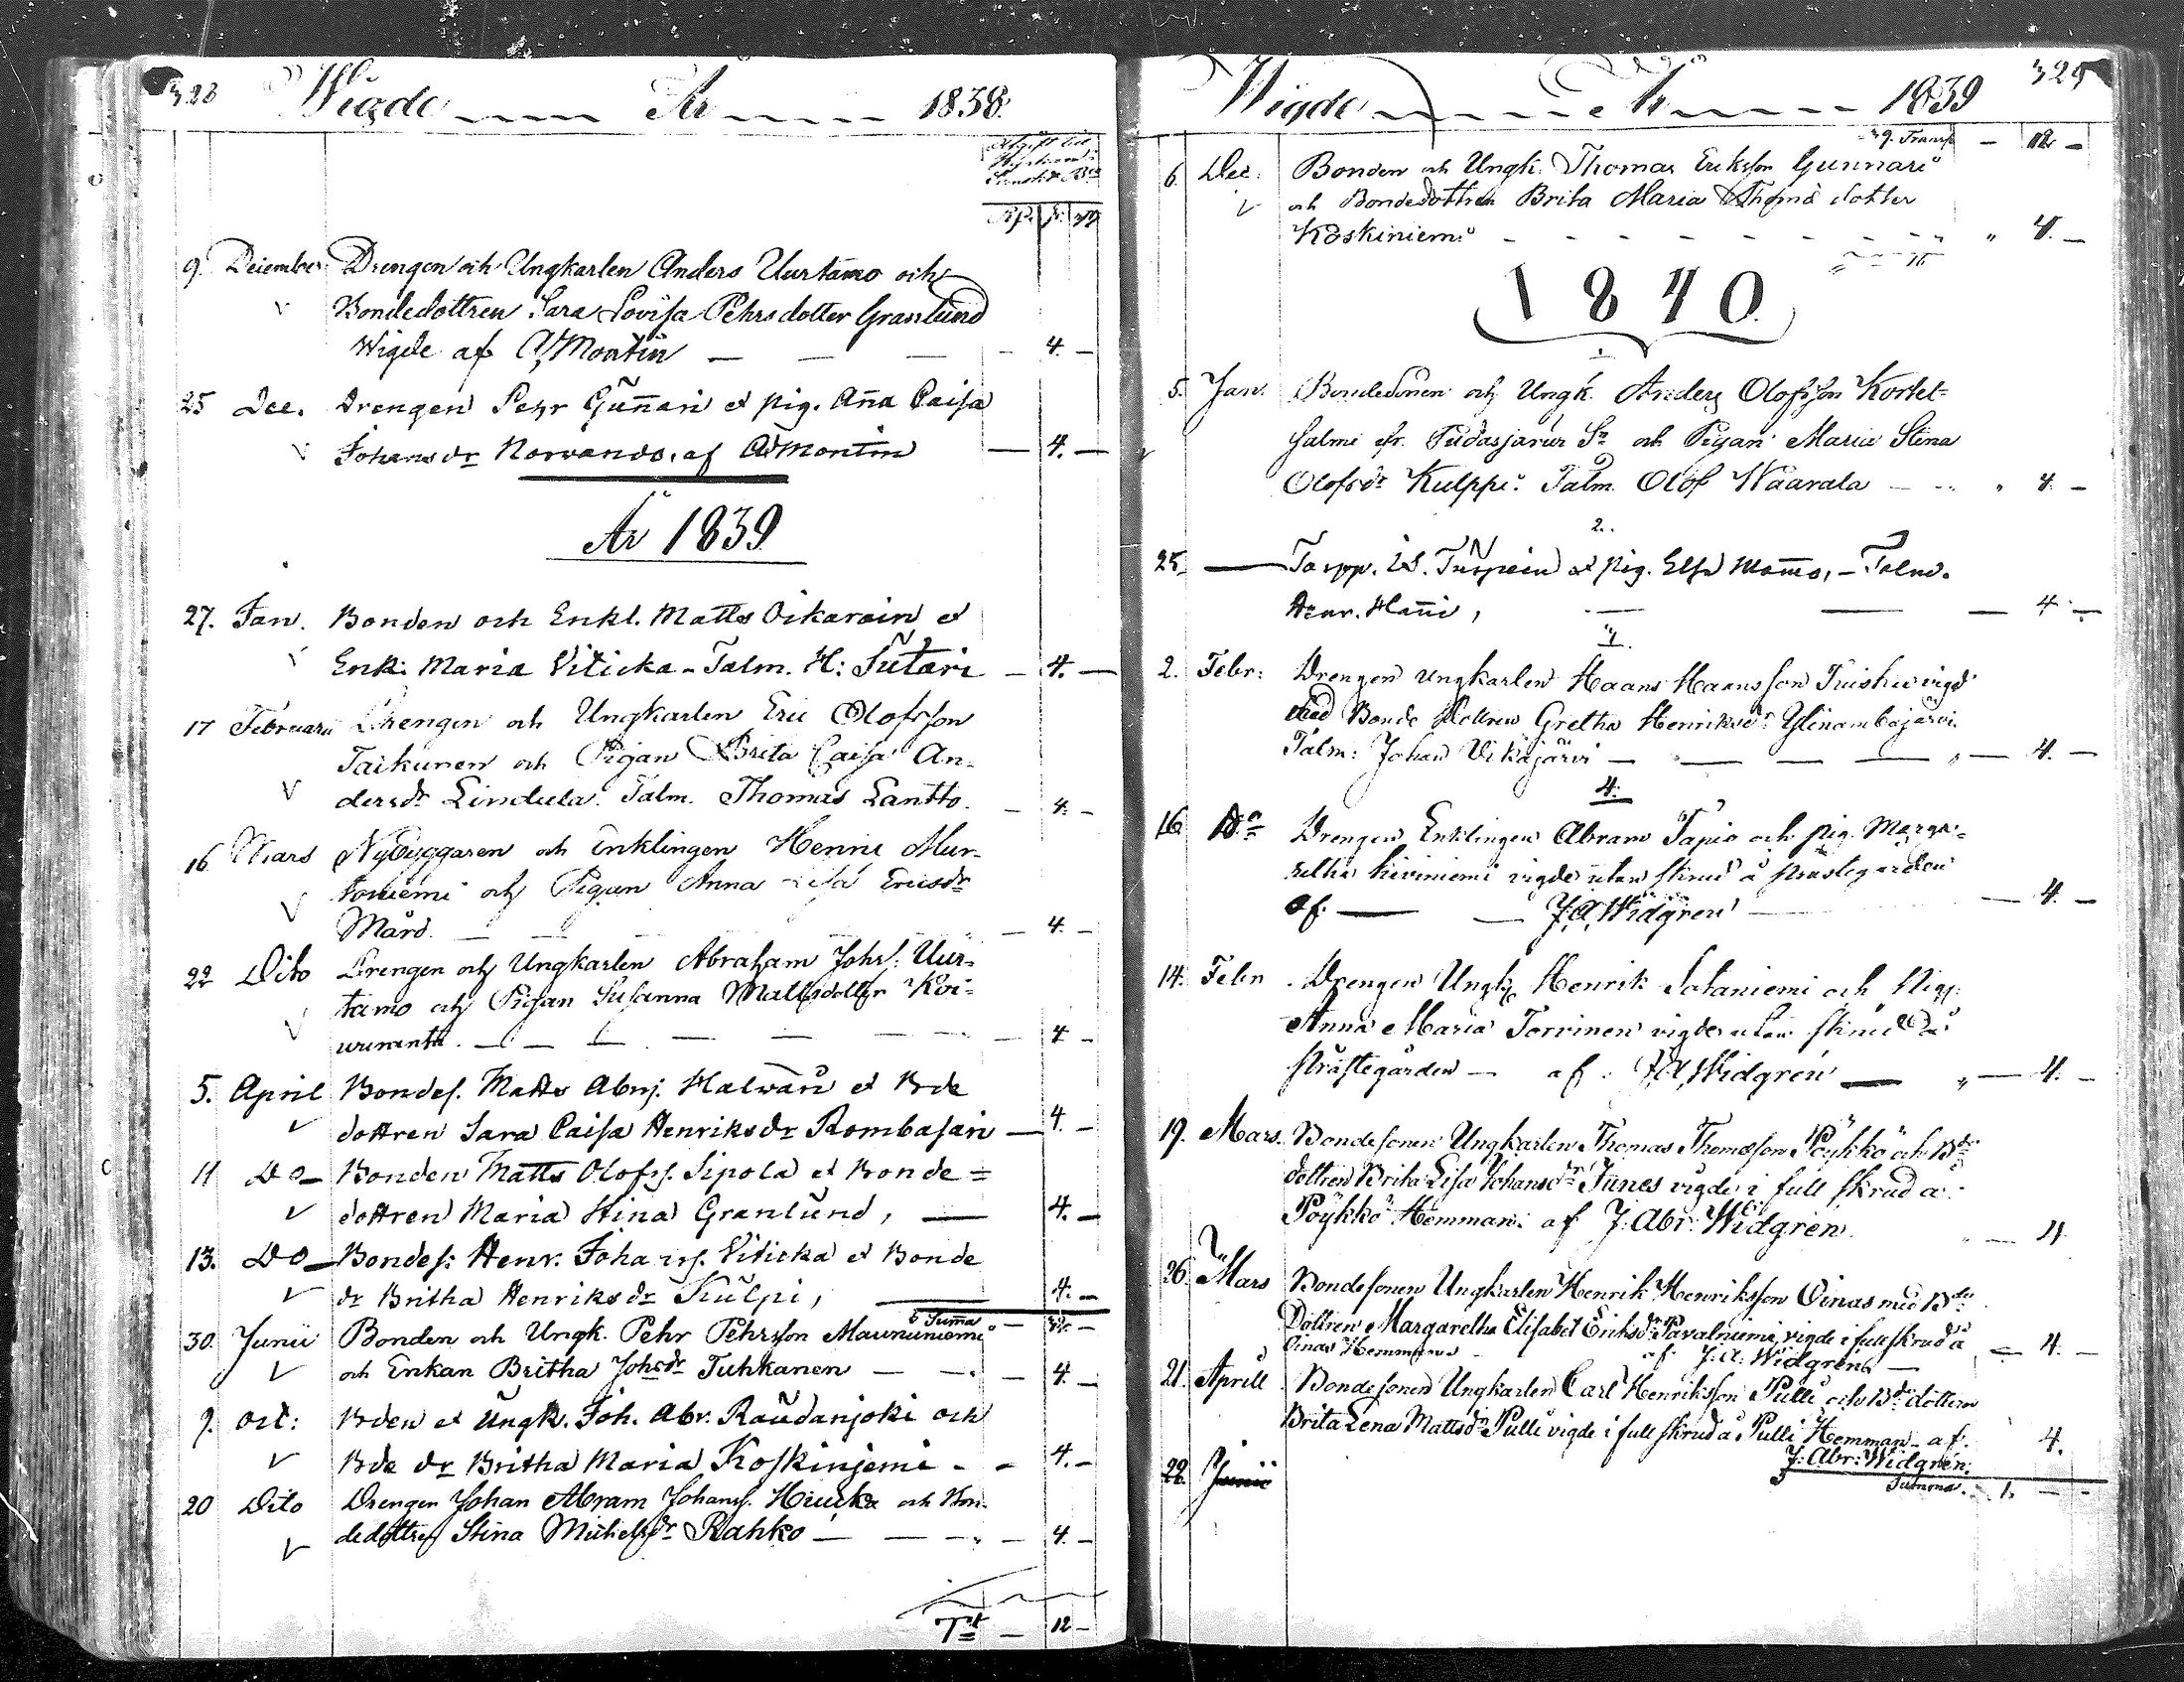 323 Wigde År 1838.
Afgift till
9. December Drengen och Ungkarlen Anders Uurtamo och
Bondedottren Sara Lovisa Pehrsdotter Granlund
Wigde af A Montin — — — 4. —
25 Dec. Drengen Pehr Gunnari et pig. Anna Caisa
Johansdr Norvando, af Ad Montin — 4. —
År 1839
27. Jan. Bonden och Enkl. Matts Oikarain et
Enk: Maria Viticka – Talm. H: Sutari — 4. —
17 Februarii Drengen och Ungkarlen Eric Olofsson
Taikunen och Pigan Brita Caisa An-
dersdr Lindula. Talm. Thomas Lantto. — 4. —
16 Mars Nybyggaren och Enklingen Henric Mur-
toniemi och Pigan Anna Ericsdr
Mård. — — — 4. —
22 Dito Drengen och Ungkarlen Abraham Johs. Uur-
tamo och Pigan Susanna Mattsdotter Koi-
— — — 4 —
5. April Bondes. Matts Abrj. Halvari et Bde
dottren Sara Caisa Henriksdr Rombasari — 4. —
11 Do Bonden Matts Olofss. Sipola et Bonde =
dottren Maria Stina Granlund, — 4. —
13. Do Bondes: Henr. Johanss. Viticka et Bonde
dr Britha Henriksdr Kulpi, — 4. —
Summa —
30. Junii Bonden och Ungk. Pehr Pehrsson Maununiemi
och Enkan Britha Johsdr Tuhkanen — — 4. —
9. Oct: Bden et Ungk. Joh. Abr. Raudanjoki och
Bde dr Britha Maria Koskinjemi - - 4. —
20 Dito Drengen Johan Abram Johanss. Hiucka och Bon-
dedottren Stina Michelsdr Rahko — — 4. —
Tt — 12 —
Wigde År 1839 324
Transp. — 12 —
6. Dec. Bonden och Ungk. Thomas Eriksson Gunnari
och Bondedottren Brita Maria Thomædotter
Koskiniemi - - - - - 4. —
1840.
1.
5. Jan. Bondesonen och Ungk. Anders Olofsson Kortet-
salmi fr. Pudasjärvi Sn och Pigan Maria Stina
Olofsdr Kulppi. Talm. Olof Waarala — 4. —
2.
25. — Torpp. Is. Turpein et pig. Elsa Mommo, – Talm.
Henr. Hanni, — — — 4. —
3.
2. Febr: Drengen Ungkarlen Haans Haansson Tuisku vigd
med Bonde dottren Gretha Henriksdr Ylinampajärvi.
Talm: Johan Vikajärvi — — — 4. —
4.
16 Do Drengen Enklingen Abram Tapio och pig. Marga-
retha Kiviniemi vigde utan skrud å prästegården
af. — — J. A. Widgren — 4. —
14. Febr. Drengen Ungk. Henrik Sataniemi och Pig.
Anna Maria Torvinen vigde utan skrud å
prästegården — af: J. A. Widgren — 4. —
19. Mars. Bondesonen Ungkarlen Thomas Thomasson Pöykkö och Bde
dottren Brita Lisa Johansdr Junes vigde i full skrud å
Pöykkö Hemman: af J: Abr: Widgren. — 4
26. Mars Bondesonen Ungkarlen Henrik Henriksson Oinas med Bde
Dottren Margaretha Elisabet Eriksdr Pavalniemi vigde i full skrud å
Oinas Hemman af. J: A: Widgren — 4. —
21. Aprill Bondesonen Ungkarlen Carl Henriksson Pulli och Bde dottren
Brita Lena Mattsdr Pulli vigde i full skrud å Pulli Hemman – af. 4.
J: Abr: Widgren.
22. Junii
Summa. 1. — —